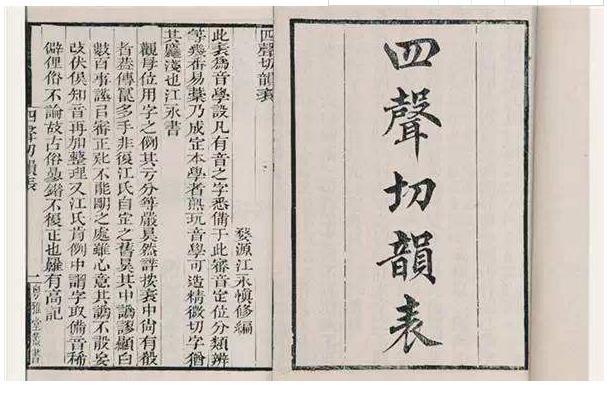 四聲切韻表
四聲切韻表
婺源江永慎修編
此表爲音學設凡有音之字悉備于此審音定位分類辨
等幾番易藁乃成定本學者熟玩音學可造精微切字猶
其麤淺也江永書
觀母位用字之例其亏分等嚴矣然諦按表中尚有殽
者葢傳寫多手非復江氏自定之舊矣其中譌謬顯白
數百事謹㠯審正 不能 之處雖心意其譌不敢妄
改伏俟知音再加整理又江氏 例中謂字取備音稀
僻俚俗不論故古俗 錯不復正也 有高記
四聲切韻表 一 粵雅堂叢書